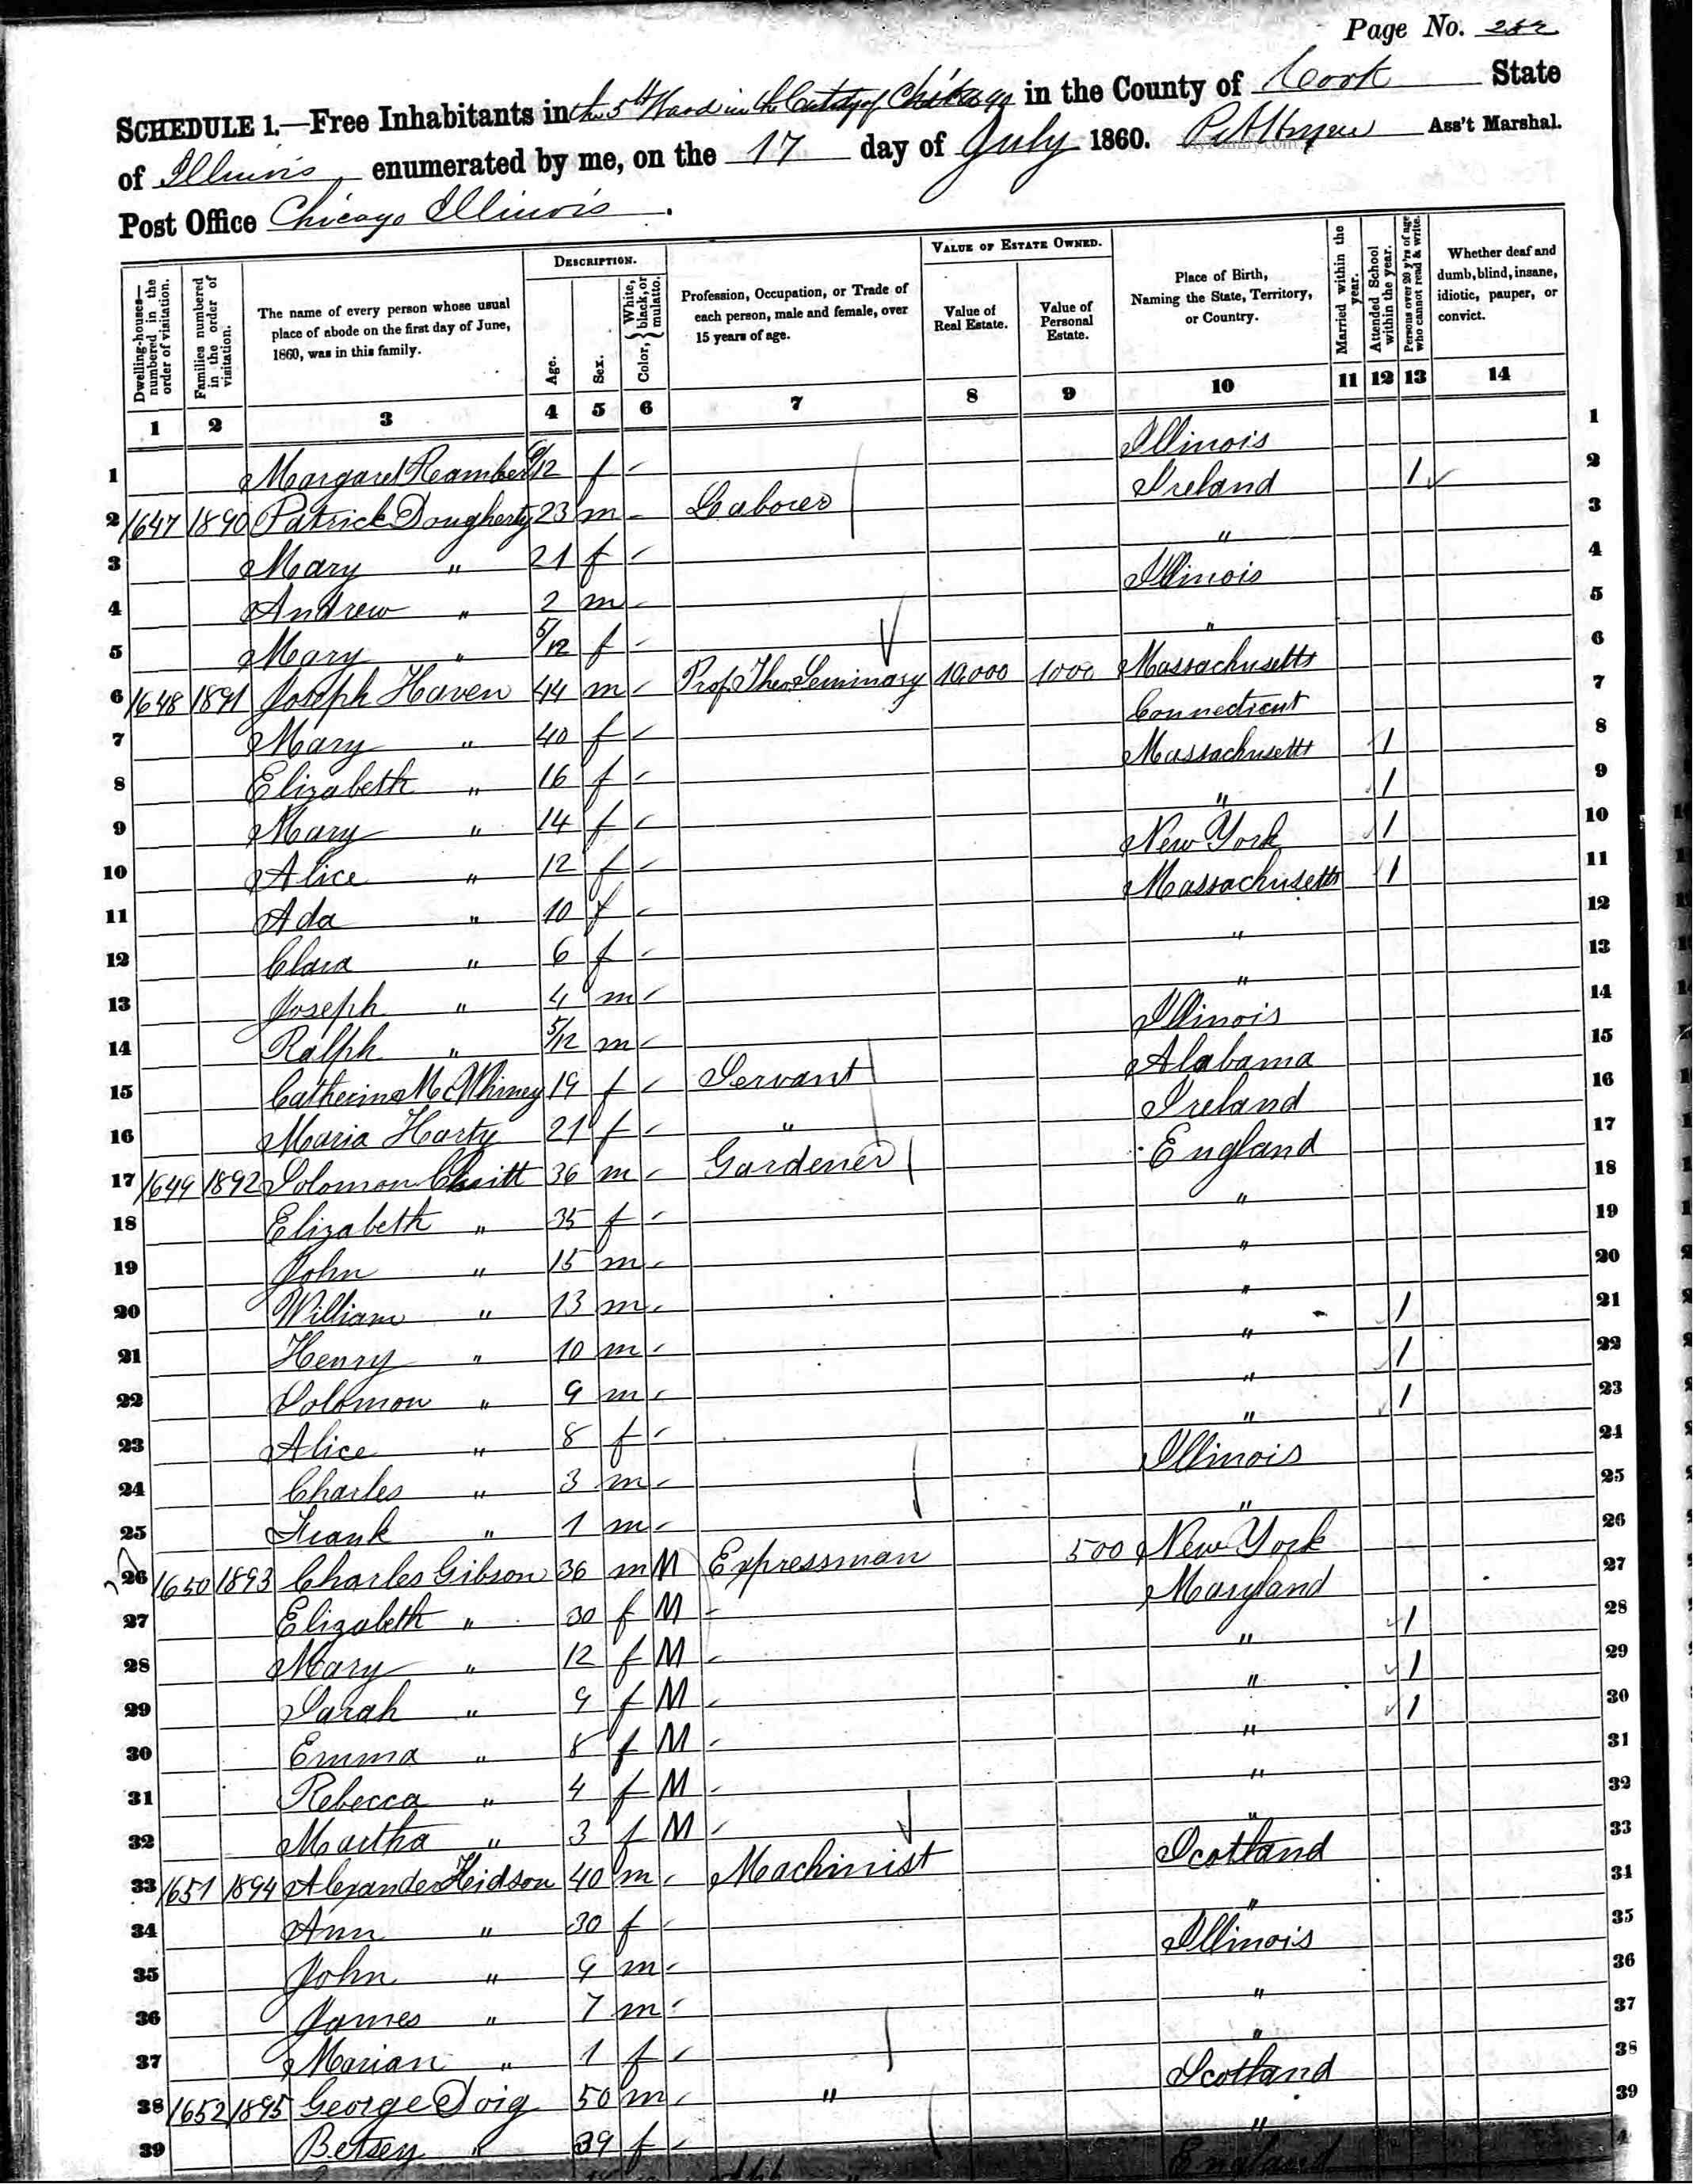 Page No. 282
SCHEDULE 1.—Free Inhabitants in the 5th Ward in the City of Chicago in the County of Cook State
of Illinois enumerated by me, on the 17 day of July 1860. Ass't Marshal.
Post Office Chicago Illinois.
Dwelling-houses—numbered in the order of visitation. Families numbered in the order of visitation. The name of every person whose usual place of abode on the first day of June, 1860, was in this family. DESCRIPTION. Age. Sex. Color, { White, black, or mulatto. Profession, Occupation, or Trade of each person, male and female, over 15 years of age. VALUE OF ESTATE OWNED. Value of Real Estate. Value of Personal Estate. Place of Birth, Naming the State, Territory, or Country. Married within the year. Attended School within the year. Persons over 20 y'rs of age who cannot read & write. Whether deaf and dumb, blind, insane, idiotic, pauper, or convict.
1 2 3 4 5 6 7 8 9 10 11 12 13 14
1 Margaret /12 f Illinois 1
2 1647 1890 Patrick Dougherty 23 m Laborer Ireland 1 2
3 Mary " 21 f " 3
4 Andrew " 2 m Illinois 4
5 Mary " 5/12 f " 5
6 1648 1891 Joseph Haven 44 m Prof. Theo Seminary 10,000 1000 Massachusetts 6
7 Mary " 40 f Connecticut 7
8 Elizabeth " 16 f Massachusetts 1 8
9 Mary " 14 f " 1 9
10 Alice " 12 f New York 1 10
11 Ada " 10 f Massachusetts 1 11
12 Clara " 6 f " 12
13 Joseph " 4 m " 13
14 Ralph " 5/12 m Illinois 14
15 Catherine McWhiney 19 f Servant Alabama 15
16 Maria Harty 21 f " Ireland 16
17 1649 1892 Solomon 36 m Gardener England 17
18 Elizabeth " 35 f " 18
19 John " 15 m " 19
20 William " 13 m " 20
21 Henry " 10 m " 1 21
22 Solomon " 9 m " 1 22
23 Alice " 8 f " 1 23
24 Charles " 3 m Illinois 24
25 Frank " 1 m " 25
26 1650 1893 Charles Gibson 36 m M Expressman 500 New York 26
27 Elizabeth " 30 f M Maryland 27
28 Mary " 12 f M " 1 28
29 Sarah " 9 f M " 1 29
30 Emma " 8 f M " 1 30
31 Rebecca " 4 f M " 31
32 Martha " 3 f M " 32
33 1651 1894 Alexander Hidson 40 m Machinist Scotland 33
34 Ann " 30 f " 34
35 John " 9 m Illinois 35
36 James " 7 m " 36
37 Marian " 1 f " 37
38 1652 1895 George Doig 50 m " Scotland 38
39 Betsey " 39 f " 39
England